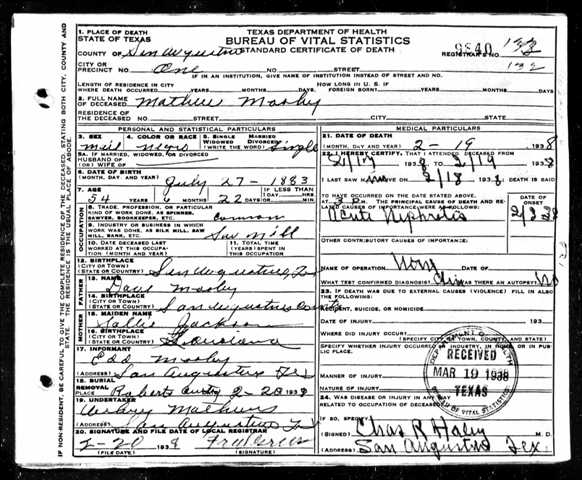 1. PLACE OF DEATH
STATE OF TEXAS
TEXAS DEPARTMENT OF HEALTH
BUREAU OF VITAL STATISTICS
STANDARD CERTIFICATE OF DEATH
COUNTY OF San Augustine
REGISTRAR'S NO. 133
CITY OR
PRECINCT NO. One NO. STREET 132
IF IN AN INSTITUTION, GIVE NAME OF INSTITUTION INSTEAD OF STREET AND NO.
LENGTH OF RESIDENCE IN CITY WHERE DEATH OCCURRED YEARS MONTHS DAYS
HOW LONG IN U. S. IF FOREIGN BORN YEARS MONTHS DAYS
2. FULL NAME OF DECEASED Mathew Mosby
RESIDENCE OF THE DECEASED NO. STREET CITY STATE
PERSONAL AND STATISTICAL PARTICULARS
3. SEX 4. COLOR OR RACE 5. SINGLE MARRIED WIDOWED DIVORCED (WRITE THE WORD) Single
Negro
5A. IF MARRIED, WIDOWED, OR DIVORCED
HUSBAND OF
(OR) WIFE OF
6. DATE OF BIRTH
(MONTH, DAY AND YEAR) July 27 - 1883
7. AGE YEARS MONTHS DAYS IF LESS THAN 1 DAY
54 6 22 HRS. MIN.
OCCUPATION
8. TRADE, PROFESSION, OR PARTICULAR KIND OF WORK DONE, AS SPINNER, SAWYER, BOOKKEEPER, ETC. common
9. INDUSTRY OR BUSINESS IN WHICH WORK WAS DONE, AS SILK MILL, SAW MILL, BANK, ETC. Saw Mill
10. DATE DECEASED LAST WORKED AT THIS OCCUPATION (MONTH AND YEAR)
11. TOTAL TIME (YEARS) SPENT IN THIS OCCUPATION
12. BIRTHPLACE
(CITY OR TOWN)
(STATE OR COUNTRY) San Augustine, Tex
FATHER
13. NAME Dave Mosby
14. BIRTHPLACE
(CITY OR TOWN)
(STATE OR COUNTRY) San Augustine
MOTHER
15. MAIDEN NAME Sallie Jackson
16. BIRTHPLACE
(CITY OR TOWN)
(STATE OR COUNTRY) Louisiana
17. INFORMANT Edd Mosby
(ADDRESS) San Augustine Tex
18. BURIAL REMOVAL
PLACE Roberts DATE 2-20 1938
19. UNDERTAKER Mathews
(ADDRESS) San Augustine Tex
20. SIGNATURE AND FILE DATE OF LOCAL REGISTRAR
2-20 1938
(SIGNATURE)
MEDICAL PARTICULARS
21. DATE OF DEATH
(MONTH, DAY AND YEAR) 2 - 19 1938
22. I HEREBY CERTIFY, THAT I ATTENDED DECEASED FROM
2/17 1938 TO 2/19 1938
I LAST SAW him ALIVE ON 2/18 1938 DEATH IS SAID
TO HAVE OCCURRED ON THE DATE STATED ABOVE,
AT 3 P. M. THE PRINCIPAL CAUSE OF DEATH AND RELATED CAUSES OF IMPORTANCE WERE AS FOLLOWS:
DATE OF ONSET
Acute Nephritis
OTHER CONTRIBUTORY CAUSES OF IMPORTANCE:
NAME OF OPERATION None DATE OF
WHAT TEST CONFIRMED DIAGNOSIS? Clin WAS THERE AN AUTOPSY? No
23. IF DEATH WAS DUE TO EXTERNAL CAUSES (VIOLENCE) FILL IN ALSO THE FOLLOWING:
ACCIDENT, SUICIDE, OR HOMICIDE
DATE OF INJURY 193
WHERE DID INJURY OCCUR?
(SPECIFY CITY OR TOWN, COUNTY, AND STATE)
SPECIFY WHETHER INJURY OCCURRED IN INDUSTRY, IN HOME, OR IN PUBLIC PLACE.
MANNER OF INJURY
NATURE OF INJURY
24. WAS DISEASE OR INJURY IN ANY WAY RELATED TO OCCUPATION OF DECEASED?
IF SO, SPECIFY
(SIGNED) Chas R Haley M. D.
(ADDRESS) San Augustine Tex.
RECEIVED
MAR 19 1938
TEXAS
BUREAU OF VITAL STATISTICS